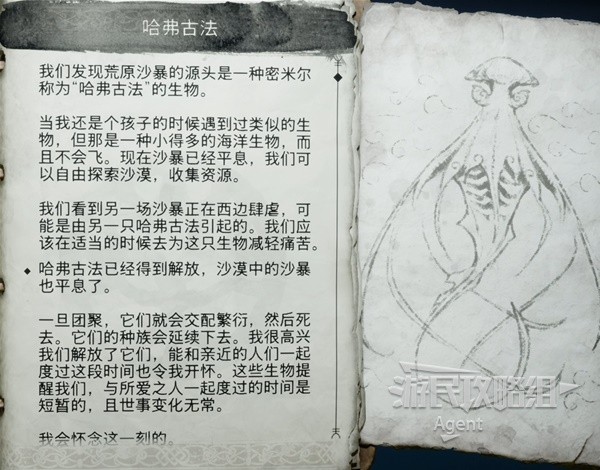 哈弗古法
我们发现荒原沙暴的源头是一种密米尔
称为“哈弗古法”的生物。
当我还是个孩子的时候遇到过类似的生
物，但那是一种小得多的海洋生物，而
且不会飞。现在沙暴已经平息，我们可
以自由探索沙漠，收集资源。
我们看到另一场沙暴正在西边肆虐，可
能是由另一只哈弗古法引起的。我们应
该在适当的时候去为这只生物减轻痛苦。
哈弗古法已经得到解放，沙漠中的沙暴
也平息了。
一旦团聚，它们就会交配繁衍，然后死
去。它们的种族会延续下去。我很高兴
我们解放了它们，能和亲近的人们一起
度过这段时间也令我开怀。这些生物提
醒我们，与所爱之人一起度过的时间是
短暂的，且世事变化无常。
我会怀念这一刻的。
游民攻略组
Agent